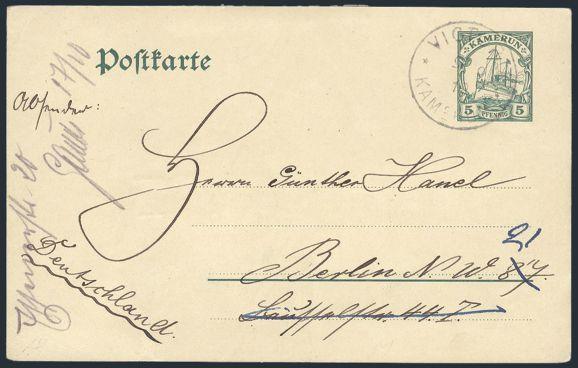 Postkarte
KAMERUN
5 PFENNIG 5
VICT
KAME
Absender:
17/10
Herrn Günther Hanel
21
Berlin N.W. 87.
44 I.
Deutschland.
20